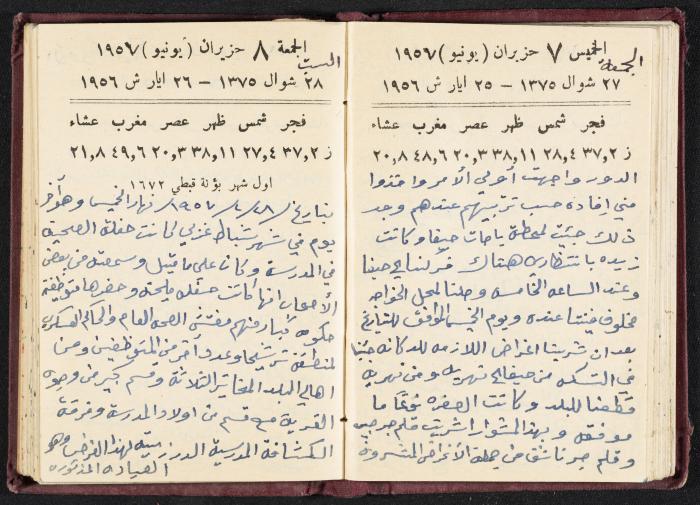 الجمعة
الخميس ٧ حزيران (يونيو) ١٩٥٧
٢٧ شوال ١٣٧٥ – ٢٥ ايار ش ١٩٥٦
فجر شمس ظهر عصر مغرب عشاء
ز ٢,٣٧ ٤,٢٨ ١١,٣٨ ٣,٢٠ ٦,٤٨ ٨,٢٠
الدور واجهت أولي الأمر واخذوا
مني إفاده حسب ترتيبهم عندهم وبعد
ذلك جئت لمحطة باصات حيفا وكانت
زيده بانتظاري هناك فنزلنا لحيفا
وعند الساعه الخامسه وصلنا لمحل الخواجه
مخلوف فبتنا عنده ويوم الخميس الموافق للتاريخ
بعد ان شرينا اغراض اللازمه للدكانه جئنا
في التكسي من حيفا الى
قطعنا للبلد وكانت السفره نوعًا ما
موفقه وبهذا المشوار اشتريت قلم
وقلم حبر ناشف من جملة الأغراض المشتروه
السبت
الجمعة ٨ حزيران (يونيو) ١٩٥٧
٢٨ شوال ١٣٧٥ – ٢٦ ايار ش ١٩٥٦
فجر شمس ظهر عصر مغرب عشاء
ز ٢,٣٧ ٤,٢٧ ١١,٣٨ ٣,٢٠ ٦,٤٩ ٨,٢١
اول شهر بؤنة قبطي ١٦٧٢
بتاريخ ١٩٥٧ نهار الخميس وهو آخر
يوم في شهر شباط غربي كانت حفلة الصحية
في المدرسة وكان على ما قيل وسمعته من بعض
الأصحاب انها كانت حفله مليحة وحضرها موظفين
حكومه كبار منهم مفتش الصحه العام والحاكم العسكري
لمنطقة ترشيحا وعدد آخر من الموظفين ومن
اهالي البلد المخاتير الثلاثة وقسم كبير من وجوه
القرية مع قسم من اولاد المدرسة وفرقة
الكشافة المدرسية الدرزية لهذا الغرض وهو
العياده المذكوره